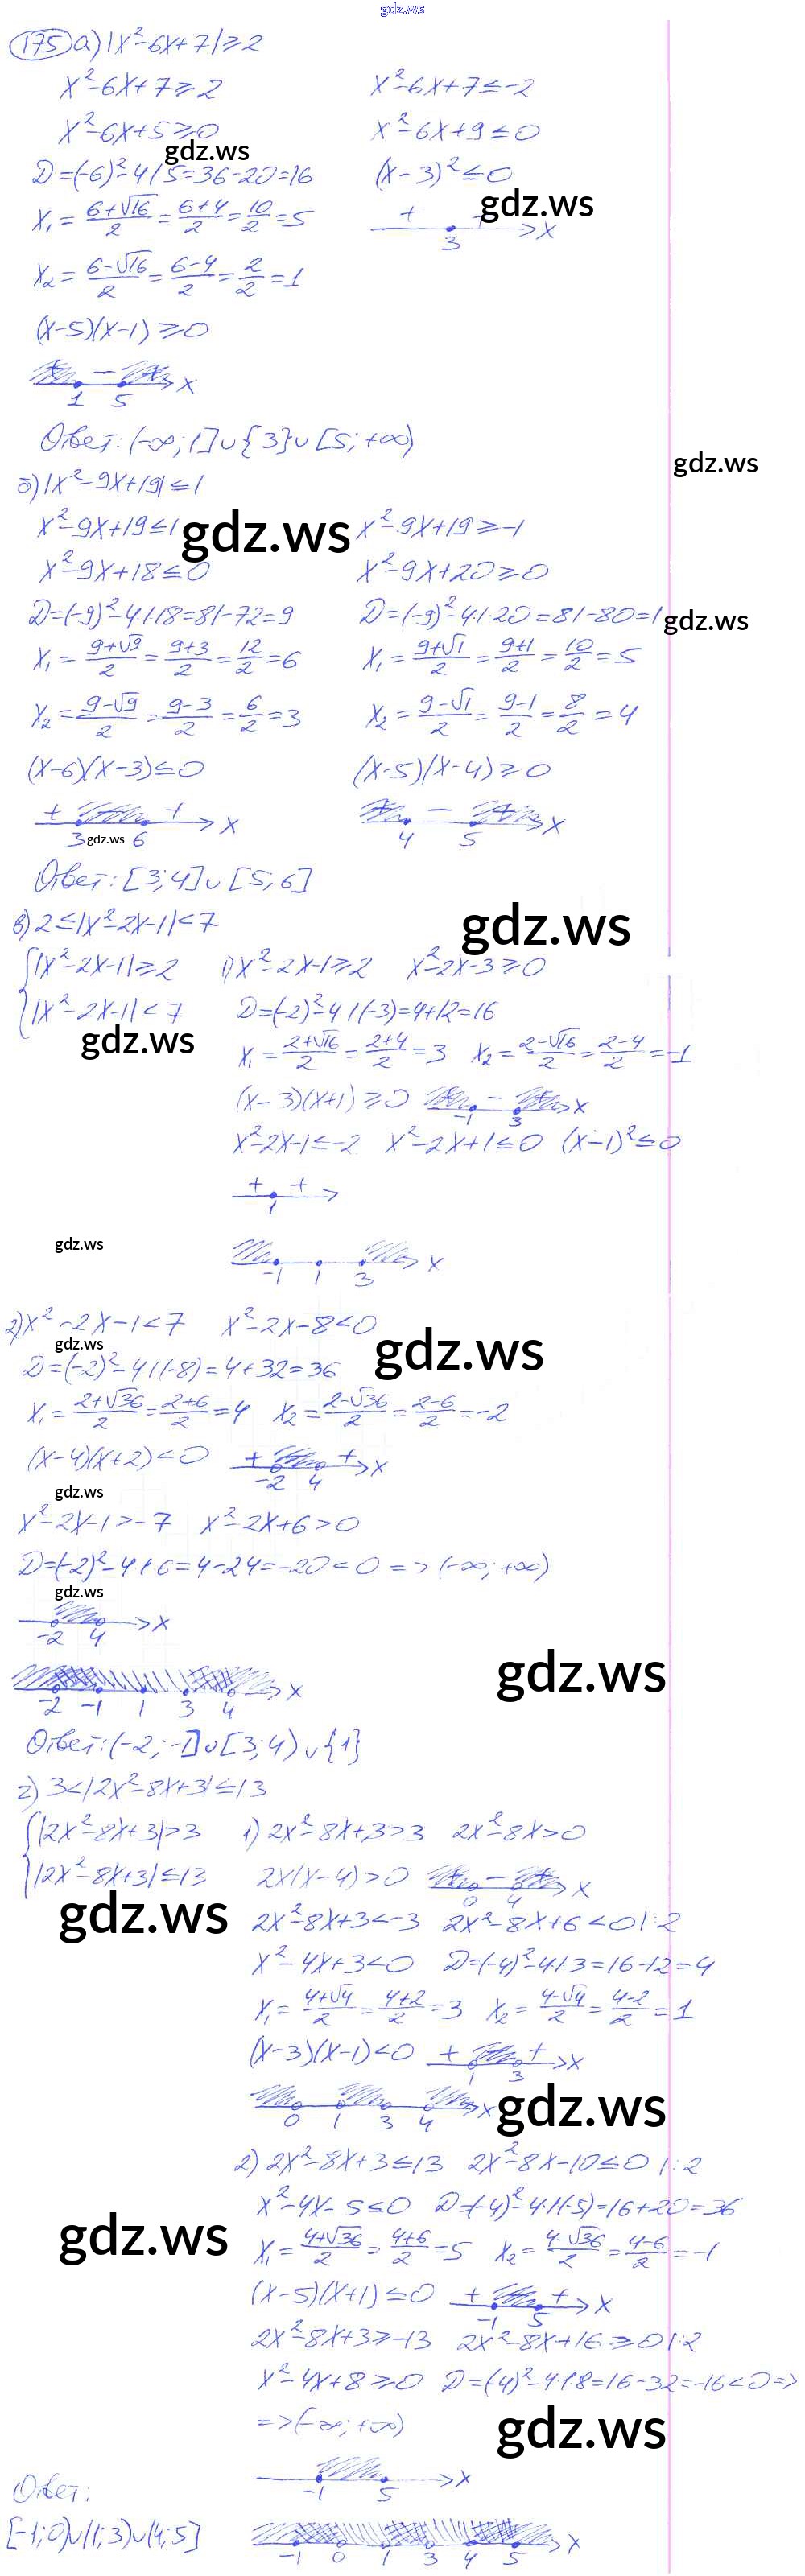 gdz.ws
175 а) |x²-6x+7|≥2
x²-6x+7≥2 x²-6x+7≤-2
x²-6x+5≥0 x²-6x+9≤0
gdz.ws
D=(-6)²-4·1·5=36-20=16 (x-3)²≤0
gdz.ws
x₁=(6+√16)/2=(6+4)/2=10/2=5
+ + 3 x
x₂=(6-√16)/2=(6-4)/2=2/2=1
(x-5)(x-1)≥0
+ - + x
1 5
Ответ: (-∞;1]∪{3}∪[5;+∞)
gdz.ws
б) |x²-9x+19|≤1
x²-9x+19≤1 x²-9x+19≥-1
gdz.ws
x²-9x+18≤0 x²-9x+20≥0
D=(-9)²-4·1·18=81-72=9 D=(-9)²-4·1·20=81-80=1
gdz.ws
x₁=(9+√9)/2=(9+3)/2=12/2=6 x₁=(9+√1)/2=(9+1)/2=10/2=5
x₂=(9-√9)/2=(9-3)/2=6/2=3 x₂=(9-√1)/2=(9-1)/2=8/2=4
(x-6)(x-3)≤0 (x-5)(x-4)≥0
+ + x + - + x
3 gdz.ws 6 4 5
Ответ: [3;4]∪[5;6]
gdz.ws
в) 2≤|x²-2x-1|<7
{|x²-2x-1|≥2 1) x²-2x-1≥2 x²-2x-3≥0
|x²-2x-1|<7 D=(-2)²-4·1·(-3)=4+12=16
gdz.ws
x₁=(2+√16)/2=(2+4)/2=3 x₂=(2-√16)/2=(2-4)/2=-1
(x-3)(x+1)≥0 + - + x
-1 3
x²-2x-1≤-2 x²-2x+1≤0 (x-1)²≤0
+ +
1
gdz.ws
-1 1 3 x
2) x²-2x-1<7 x²-2x-8<0
gdz.ws
gdz.ws
D=(-2)²-4·1·(-8)=4+32=36
x₁=(2+√36)/2=(2+6)/2=4 x₂=(2-√36)/2=(2-6)/2=-2
(x-4)(x+2)<0 + + x
-2 4
gdz.ws
x²-2x-1>-7 x²-2x+6>0
D=(-2)²-4·1·6=4-24=-20<0 => (-∞;+∞)
gdz.ws
-2 4 x
gdz.ws
-2 -1 1 3 4 x
Ответ: (-2;-1]∪[3;4)∪{1}
г) 3<|2x²-8x+3|≤13
{|2x²-8x+3|>3 1) 2x²-8x+3>3 2x²-8x>0
|2x²-8x+3|≤13 2x(x-4)>0 + - + x
0 4
gdz.ws
2x²-8x+3<-3 2x²-8x+6<0 |:2
x²-4x+3<0 D=(-4)²-4·1·3=16-12=4
x₁=(4+√4)/2=(4+2)/2=3 x₂=(4-√4)/2=(4-2)/2=1
(x-3)(x-1)<0 + + x
1 3
0 1 3 4 x
gdz.ws
2) 2x²-8x+3≤13 2x²-8x-10≤0 |:2
x²-4x-5≤0 D=(-4)²-4·1·(-5)=16+20=36
gdz.ws
x₁=(4+√36)/2=(4+6)/2=5 x₂=(4-√36)/2=(4-6)/2=-1
(x-5)(x+1)≤0 + + x
-1 5
2x²-8x+3≥-13 2x²-8x+16≥0 |:2
x²-4x+8≥0 D=(-4)²-4·1·8=16-32=-16<0 =>
=> (-∞;+∞)
gdz.ws
-1 5 x
Ответ:
[-1;0)∪(1;3)∪(4;5]
-1 0 1 3 4 5 x